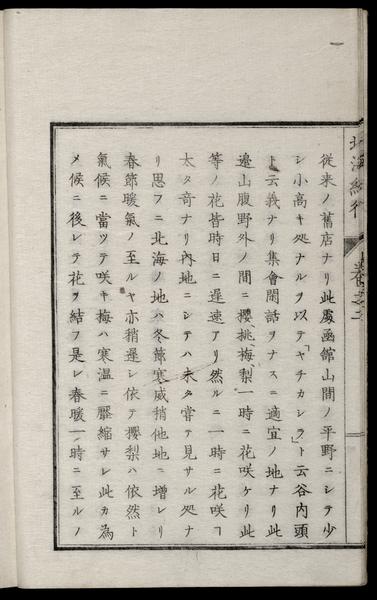 北海紀行
巻之二
従来ノ舊店ナリ此處函館山間ノ平野ニシテ少
シ小高キ処ナルヲ以テ「ヤチカシラ」ト云谷内頭
ト云義ナリ集會閑話ヲナスニ適宜ノ地ナリ此
邉山腹野外ノ間ニ櫻、桃、梅、梨一時ニ花咲ケリ此
等ノ花皆時日ニ遅速アリ然ルニ一時ニ花咲ヿ
太タ奇ナリ内地ニシテハ未タ嘗テ見サル処ナ
リ思フニ北海ノ地ハ冬節寒威稍他地ニ增レリ
春節暖氣ノ至ルヤ亦稍遅シ依テ櫻梨ハ依然ト
氣候ニ當ツテ咲キ梅ハ寒温ニ壓縮サレ此カ為
メ候ニ後レテ花ヲ結フ是レ春暖一時ニ至ルノ